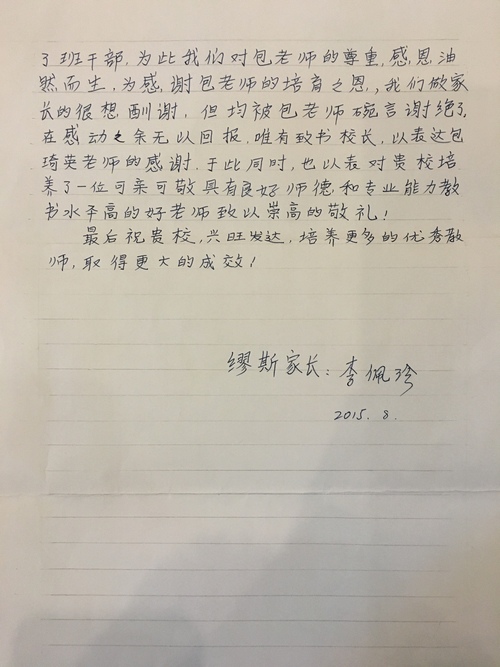 了班干部，为此我们对包老师的尊重，感恩油
然而生，为感谢包老师的培育之恩，，我们做家
长的很想酬谢，但均被包老师碗言谢绝了，
在感动之余无以回报，唯有致书校长，以表达包
琦英老师的感谢，于此同时，也以表对贵校培
养了一位可亲可敬具有良好师德和专业能力教
书水平高的好老师致以崇高的敬礼！
最后祝贵校，兴旺发达，培养更多的优秀教
师，取得更大的成效！
缪斯家长：李佩珍
2015.8.